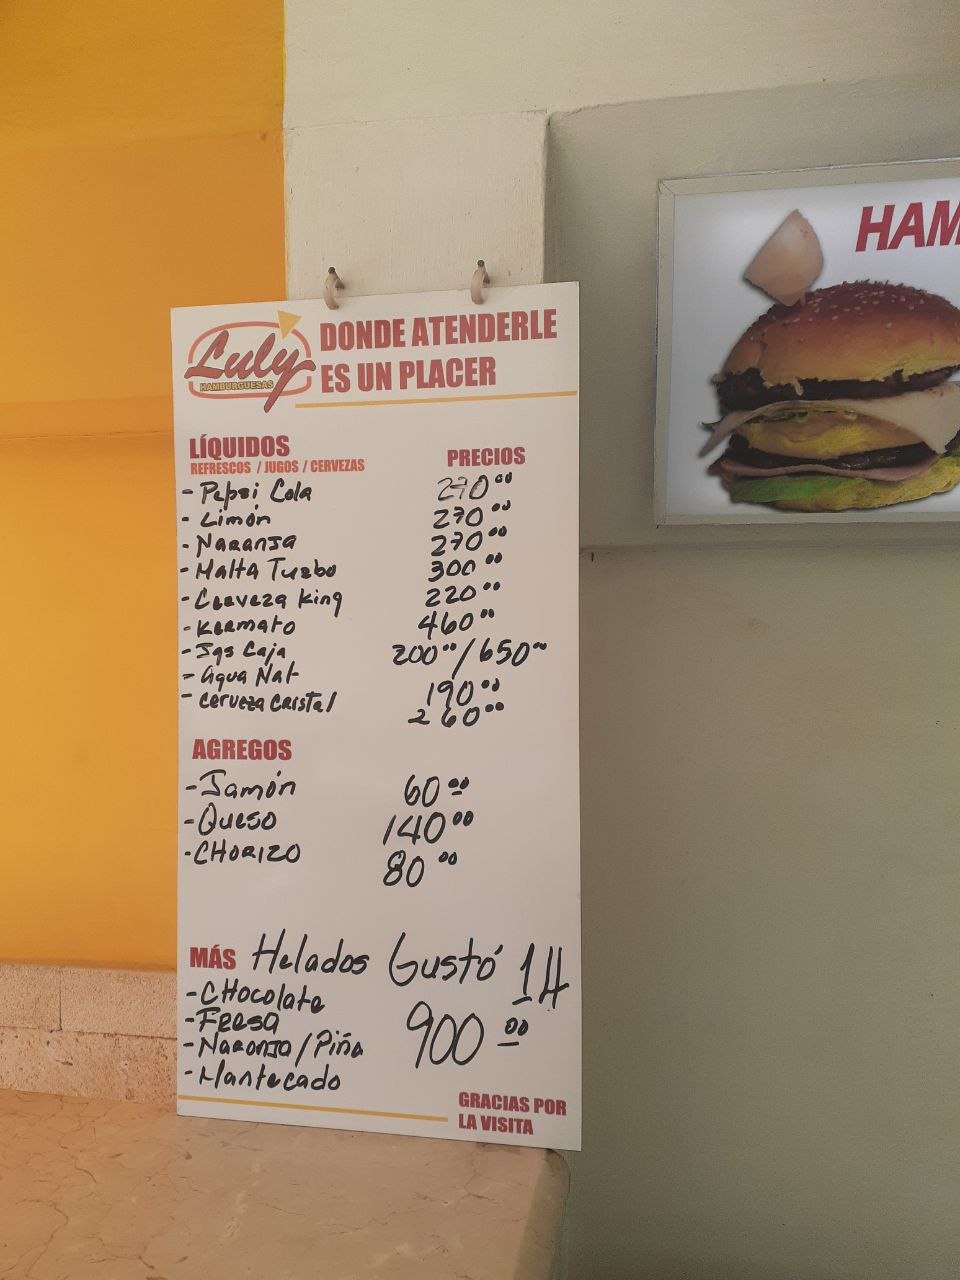 Luly
HAMBURGUESAS
DONDE ATENDERLE
ES UN PLACER
LÍQUIDOS
REFRESCOS / JUGOS / CERVEZAS
PRECIOS
- Pepsi Cola 270⁰⁰
- Limón 270⁰⁰
- NARANJA 270⁰⁰
- MALTA Turbo 300⁰⁰
- Cerveza King 220⁰⁰
- Kermato 460⁰⁰
- Jgs Caja 200⁰⁰/650⁰⁰
- Agua Nat 190⁰⁰
- Cerveza Cristal 260⁰⁰
AGREGOS
- Jamón 60⁰⁰
- Queso 140⁰⁰
- CHORIZO 80⁰⁰
MÁS Helados Gustó
- CHocolate
- Fresa
- Naranja/Piña 900⁰⁰
- Mantecado
GRACIAS POR
LA VISITA
HAM